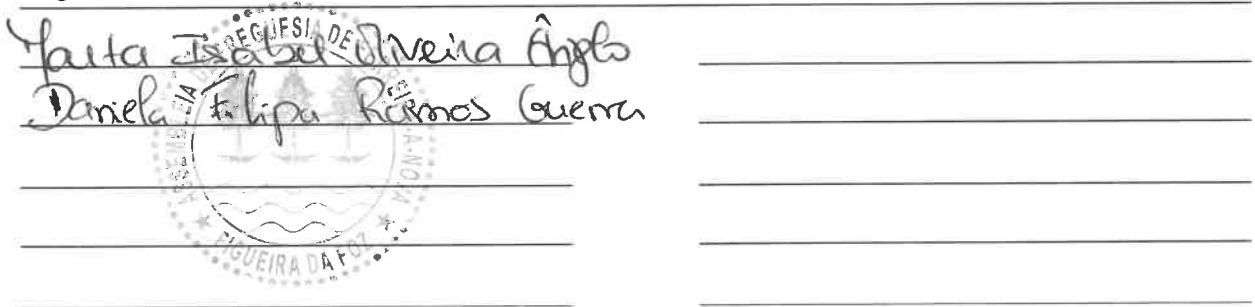 Marta Isabel Oliveira Ângelo
Daniela Filipa Ramos Guerra
ASSEMBLEIA DE FREGUESIA DE
A-NOVA
FIGUEIRA DA FOZ